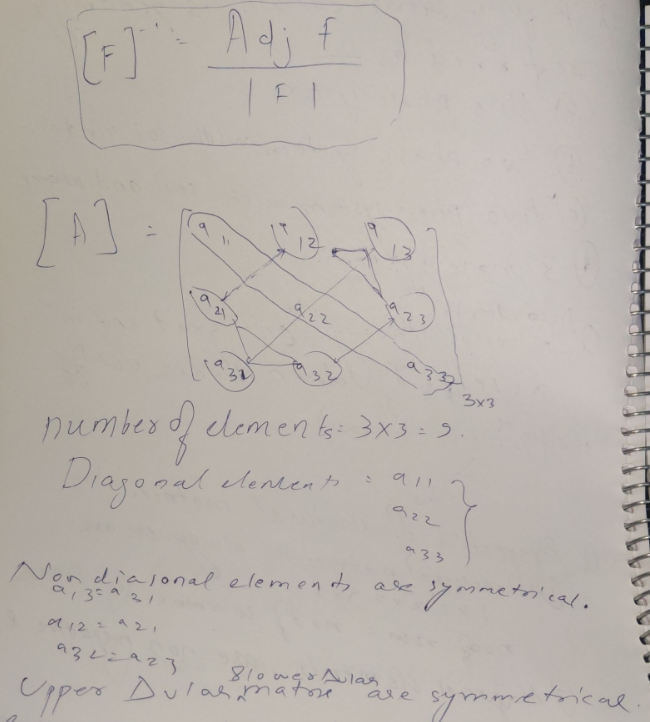 [F]⁻¹ = Adj F
| F |
[A] =
a11 a12 a13
a21 a22 a23
a31 a32 a33
3x3
number of elements = 3x3 = 9.
Diagonal elements = a11
a22
a33
Non diagonal elements are symmetrical.
a13 = a31
a12 = a21
a32 = a23
& lower Δular
Upper Δular matrix are symmetrical.